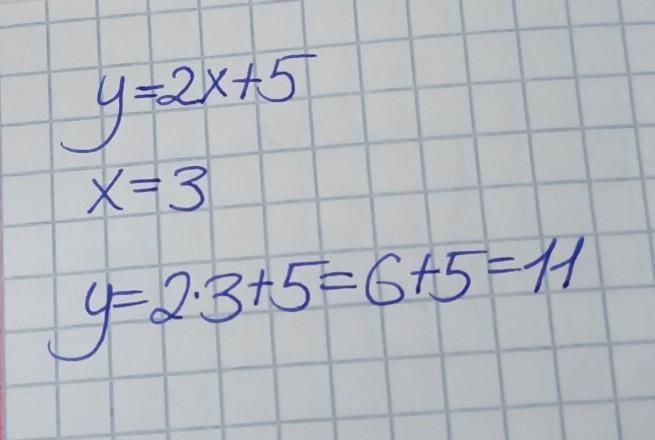 y=2x+5
x=3
y=2·3+5=6+5=11